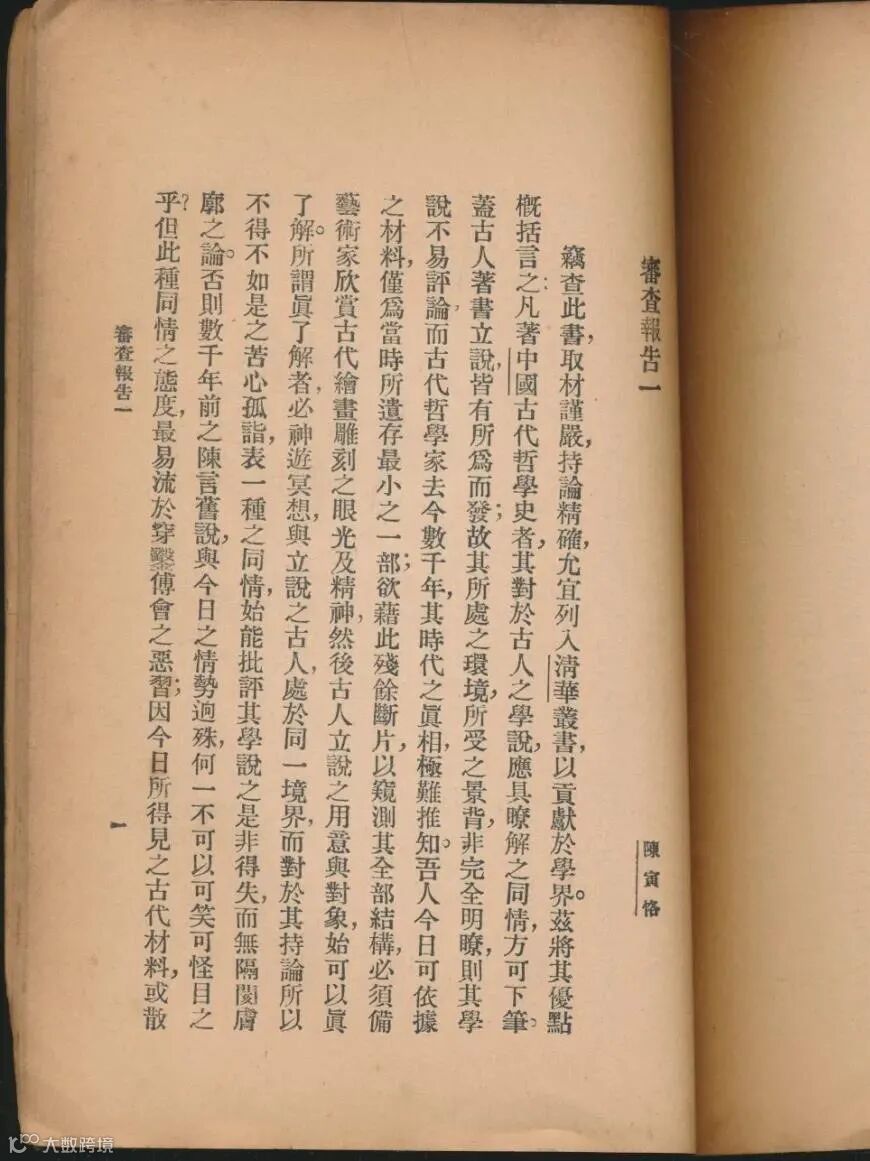 審查報告一
陳寅恪
竊查此書，取材謹嚴，持論精確，允宜列入清華叢書，以貢獻於學界。茲將其優點
概括言之：凡著中國古代哲學史者，其對於古人之學說，應具瞭解之同情，方可下筆。
蓋古人著書立說，皆有所爲而發；故其所處之環境，所受之景背，非完全明瞭，則其學
說不易評論。而古代哲學家去今數千年，其時代之眞相，極難推知。吾人今日可依據
之材料，僅爲當時所遺存最小之一部；欲藉此殘餘斷片，以窺測其全部結構，必須備
藝術家欣賞古代繪畫雕刻之眼光及精神，然後古人立說之用意與對象，始可以眞
了解。所謂眞了解者，必神遊冥想，與立說之古人，處於同一境界，而對於其持論所以
不得不如是之苦心孤詣，表一種之同情，始能批評其學說之是非得失，而無隔閡膚
廓之論。否則數千年前之陳言舊說，與今日之情勢逈殊，何一不可以可笑可怪目之
乎？但此種同情之態度，最易流於穿鑿傅會之惡習；因今日所得見之古代材料，或散
審查報告一
一
大数跨境